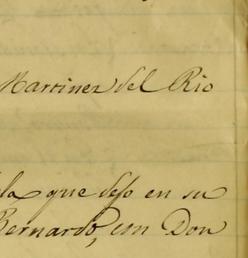 Martinez del Rio
que dejo en su
Bernardo, con Don